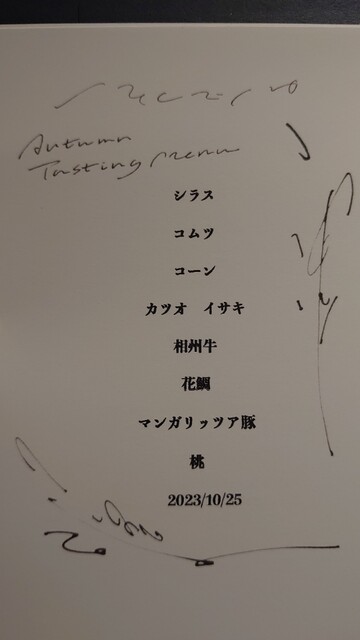 Autumn
Tasting menu
シラス
コムツ
コーン
カツオ　イサキ
相州牛
花鯛
マンガリッツア豚
桃
2023/10/25